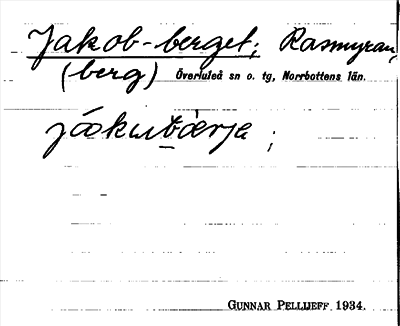 Jakob-berget; Rasmyran,
(berg) Överluleå sn o. tg, Norrbottens län.
jåkut̲bærje ;
GUNNAR PELLIJEFF 1934.